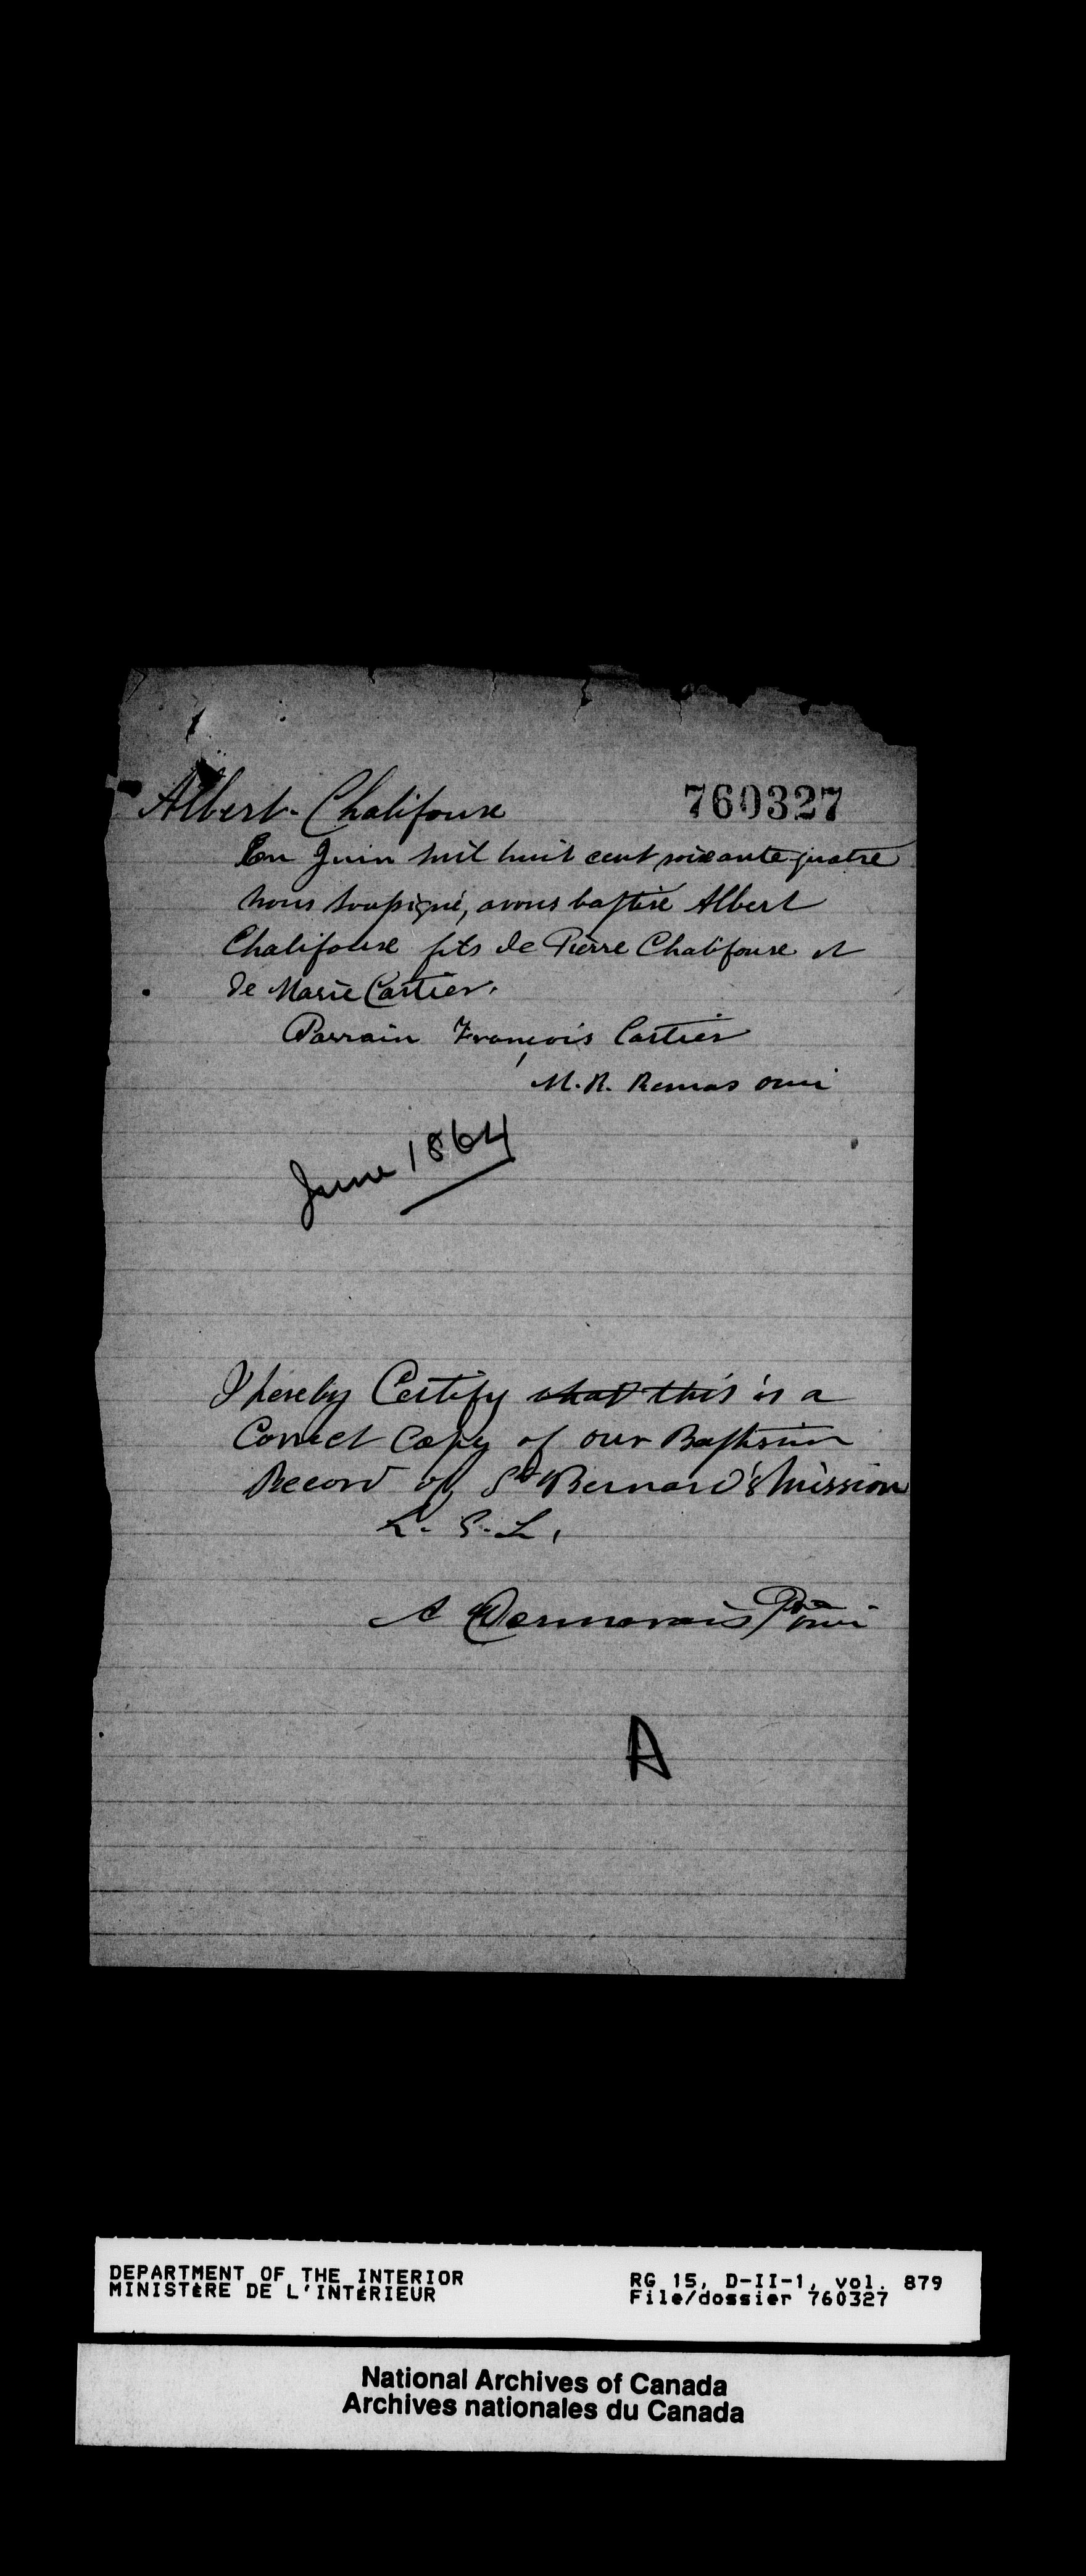 Albert Chalifoux 760327
En Juin mil huit cent soixante quatre
nous soussigné, avons baptisé Albert
Chalifoux fils de Pierre Chalifoux et
de Marie Cartier.
Parrain François Cartier
M. R. Remas omi
June 1864
I hereby Certify that this is a
Correct Copy of our Baptism
Record of St Bernard's Mission
L. S. L.
A Desmarais Ptre omi
A
DEPARTMENT OF THE INTERIOR RG 15, D-II-1, vol. 879
MINISTÈRE DE L'INTÉRIEUR File/dossier 760327
National Archives of Canada
Archives nationales du Canada